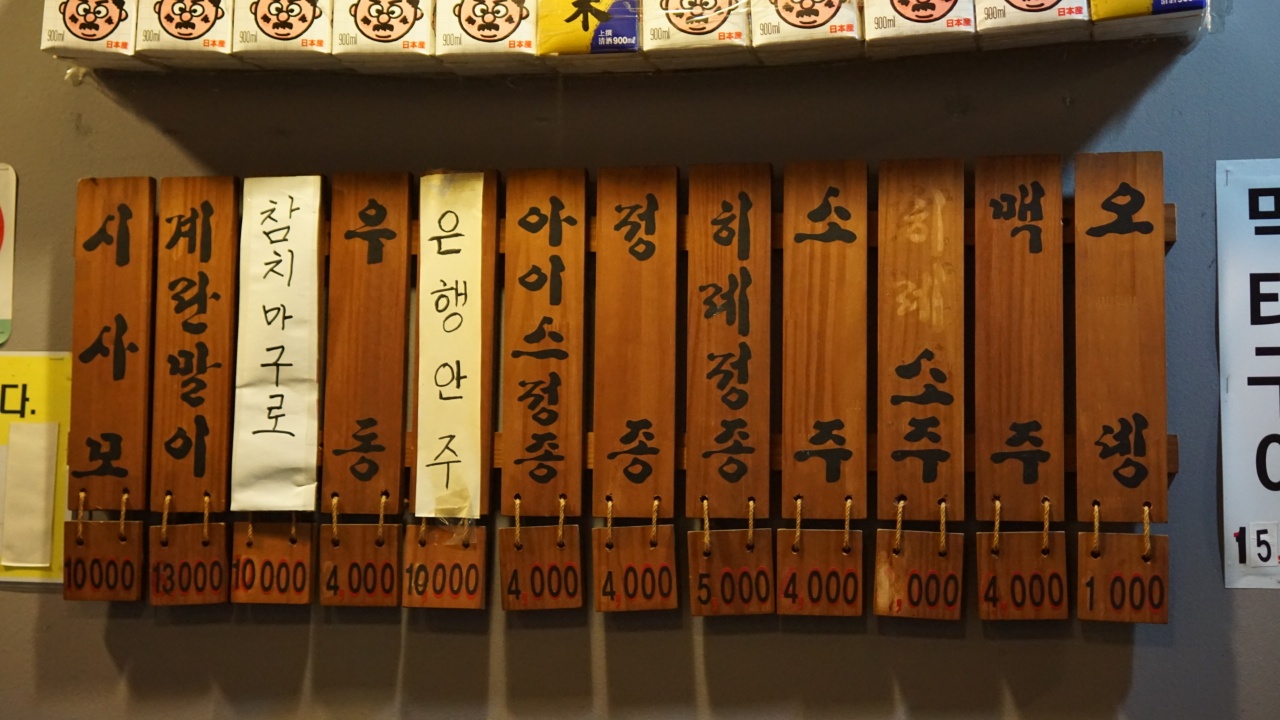 900ml 日本産
900ml 日本産
900ml 日本産
900ml 日本産
900ml 日本産
上撰
清酒900ml
900ml 日本産
900ml 日本産
900ml 日本産
900ml 日本産
다.
시사모
10000
계란말이
13000
참치마구로
10000
우동
4,000
은행안주
10000
아이스정종
4,000
정종
4,000
히레정종
5,000
소주
4,000
히레소주
,000
맥주
4,000
오뎅
1 000
15,